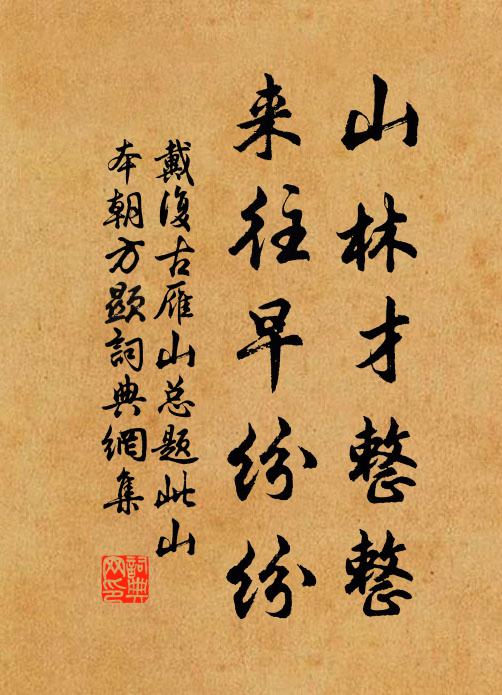 山林才整整
来往早纷纷
戴復古雁山总题此山
本朝方顯詞典網集
詞典網印